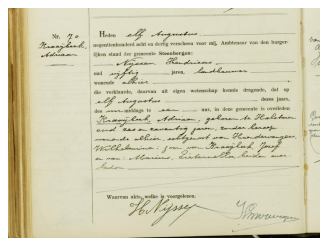 No. 70
Kraaijkerk
Adriaan
Heden elf Augustus
negentienhonderd acht en dertig verscheen voor mij, Ambtenaar van den burger-
lijken stand der gemeente Steenbergen:
Nijssen Hendricus
oud vijftig jaren, landbouwer
wonende alhier
die verklaarde, daarvan uit eigen wetenschap kennis dragende, dat op
elf Augustus dezes jaars,
des voormiddags te een uur, in deze gemeente is overleden
Kraaijkerk Adriaan, geboren te Halsteren
oud zes en zeventig jaren, zonder beroep
wonende alhier, echtgenoot van
Wilhelmina; zoon van Kraaijkerk Josef
en van Beiden over-
leden
Waarvan akte, welke is voorgelezen.
H. Nijssen